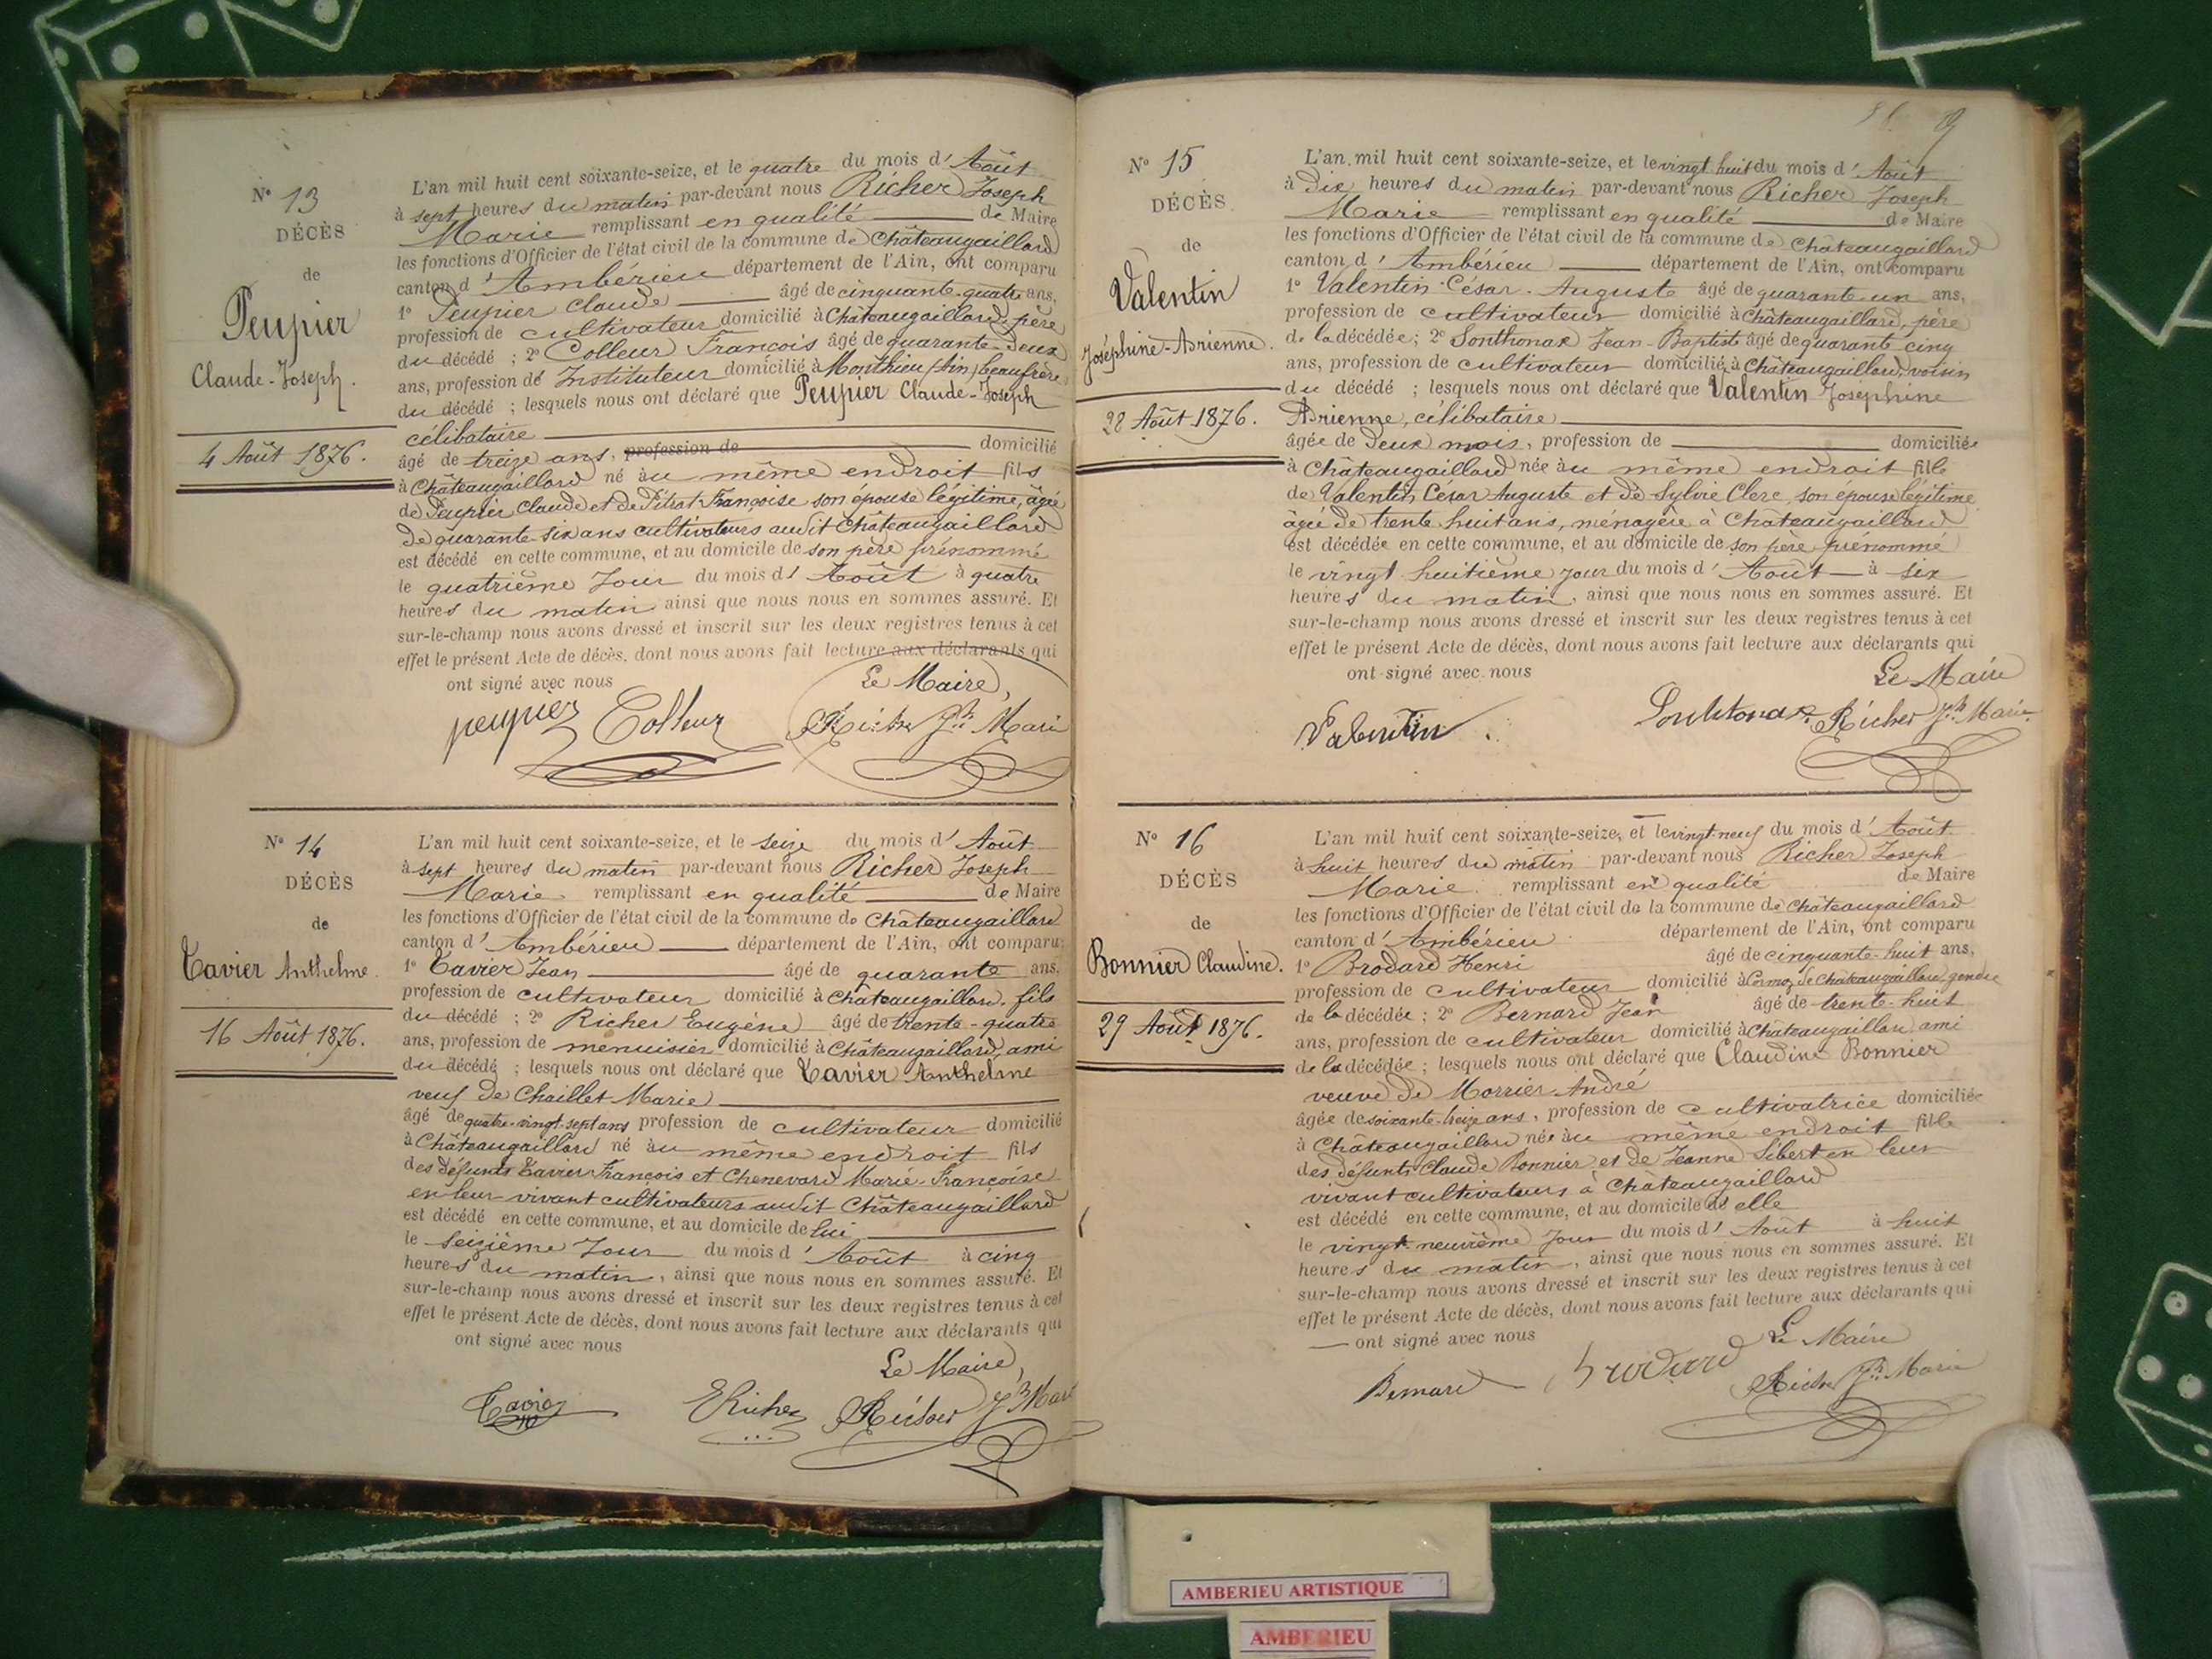 N° 13
DÉCÈS
de
Peupier
Claude-Joseph.
4 Août 1876.
L'an mil huit cent soixante-seize, et le quatre du mois d'Août
à sept heures du matin par-devant nous Richer Joseph
Marie remplissant en qualité de Maire
les fonctions d'Officier de l'état civil de la commune de Châteaugaillard
canton d'Ambérieu département de l'Ain, ont comparu
1° Peupier Claude âgé de cinquante-quatre ans,
profession de cultivateur domicilié à Châteaugaillard, père
du décédé ; 2° Colleur François âgé de quarante-deux
ans, profession de Instituteur domicilié à Monthieu (Ain) beaufrère
du décédé ; lesquels nous ont déclaré que Peupier Claude-Joseph
célibataire
âgé de treize ans, profession de domicilié
à Châteaugaillard né au même endroit fils
de Peupier Claude et de Pitrat Françoise son épouse légitime, âgée
de quarante-six ans cultivateurs audit Châteaugaillard
est décédé en cette commune, et au domicile de son père prénommé
le quatrième Jour du mois d'Août à quatre
heures du matin ainsi que nous nous en sommes assuré. Et
sur-le-champ nous avons dressé et inscrit sur les deux registres tenus à cet
effet le présent Acte de décès, dont nous avons fait lecture aux déclarants qui
ont signé avec nous
Le Maire,
peupier Colleur Richer Jph Marie
N° 14
DÉCÈS
de
Tavier Anthelme
16 Août 1876.
L'an mil huit cent soixante-seize, et le seize du mois d'Août
à sept heures du matin par-devant nous Richer Joseph
Marie remplissant en qualité de Maire
les fonctions d'Officier de l'état civil de la commune de Châteaugaillard
canton d'Ambérieu département de l'Ain, ont comparu
1° Tavier Jean âgé de quarante ans,
profession de cultivateur domicilié à Châteaugaillard, fils
du décédé ; 2° Richer Eugène âgé de trente-quatre
ans, profession de menuisier domicilié à Châteaugaillard, ami
du décédé ; lesquels nous ont déclaré que Tavier Anthelme
veuf de Chaillet Marie
âgé de quatre-vingt-sept ans profession de cultivateur domicilié
à Châteaugaillard né au même endroit fils
des défunts Tavier François et Chenevard Marie-Françoise
en leur vivant cultivateurs audit Châteaugaillard
est décédé en cette commune, et au domicile de lui
le seizième Jour du mois d'Août à cinq
heures du matin, ainsi que nous nous en sommes assuré. Et
sur-le-champ nous avons dressé et inscrit sur les deux registres tenus à cet
effet le présent Acte de décès, dont nous avons fait lecture aux déclarants qui
ont signé avec nous
Le Maire,
Tavier ERicher Richer Jph Mari
N° 15
DÉCÈS
de
Valentin
Joséphine-Adrienne.
28 Août 1876.
L'an mil huit cent soixante-seize, et le vingt huit du mois d'Août
à dix heures du matin par-devant nous Richer Joseph
Marie remplissant en qualité de Maire
les fonctions d'Officier de l'état civil de la commune de Châteaugaillard
canton d'Ambérieu département de l'Ain, ont comparu
1° Valentin César-Auguste âgé de quarante un ans,
profession de cultivateur domicilié à Châteaugaillard, père
de la décédée ; 2° Sonthonax Jean-Baptiste âgé de quarante cinq
ans, profession de cultivateur domicilié à Châteaugaillard, voisin
du décédé ; lesquels nous ont déclaré que Valentin Joséphine
Adrienne, célibataire
âgée de Deux mois, profession de domiciliée
à Châteaugaillard née au même endroit fille
de Valentin César Auguste et de Sylvie Clerc, son épouse légitime
âgée de trente huit ans, ménagère à Châteaugaillard
est décédée en cette commune, et au domicile de son père prénommé
le vingt huitième jour du mois d'Août à six
heures du matin, ainsi que nous nous en sommes assuré. Et
sur-le-champ nous avons dressé et inscrit sur les deux registres tenus à cet
effet le présent Acte de décès, dont nous avons fait lecture aux déclarants qui
ont signé avec nous
Le Maire
Valentin Sonthonax Richer Jph Marie
N° 16
DÉCÈS
de
Bonnier Claudine.
29 Août 1876.
L'an mil huit cent soixante-seize, et le vingt-neuf du mois d'Août
à huit heures du matin par-devant nous Richer Joseph
Marie remplissant en qualité de Maire
les fonctions d'Officier de l'état civil de la commune de Châteaugaillard
canton d'Ambérieu département de l'Ain, ont comparu
1° Brodard Henri âgé de cinquante-huit ans,
profession de cultivateur domicilié à Cormoz de Châteaugaillard gendre
de la décédée ; 2° Bernard Jean âgé de trente-huit
ans, profession de cultivateur domicilié à Châteaugaillard ami
de la décédée ; lesquels nous ont déclaré que Claudine Bonnier
veuve de Morrier André
âgée de soixante-treize ans, profession de cultivatrice domiciliée
à Châteaugaillard née au même endroit fille
des défunts Claude Bonnier et de Jeanne Sibert en leur
vivant cultivateurs à Châteaugaillard
est décédé en cette commune, et au domicile de elle
le vingt-neuvième jour du mois d'Août à huit
heures du matin, ainsi que nous nous en sommes assuré. Et
sur-le-champ nous avons dressé et inscrit sur les deux registres tenus à cet
effet le présent Acte de décès, dont nous avons fait lecture aux déclarants qui
ont signé avec nous
Le Maire
Bernard Brodard Richer Jph Marie
AMBERIEU ARTISTIQUE
AMBERIEU